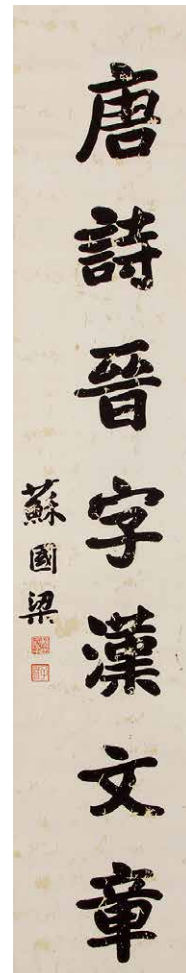 唐詩晉字漢文章
蘇國梁